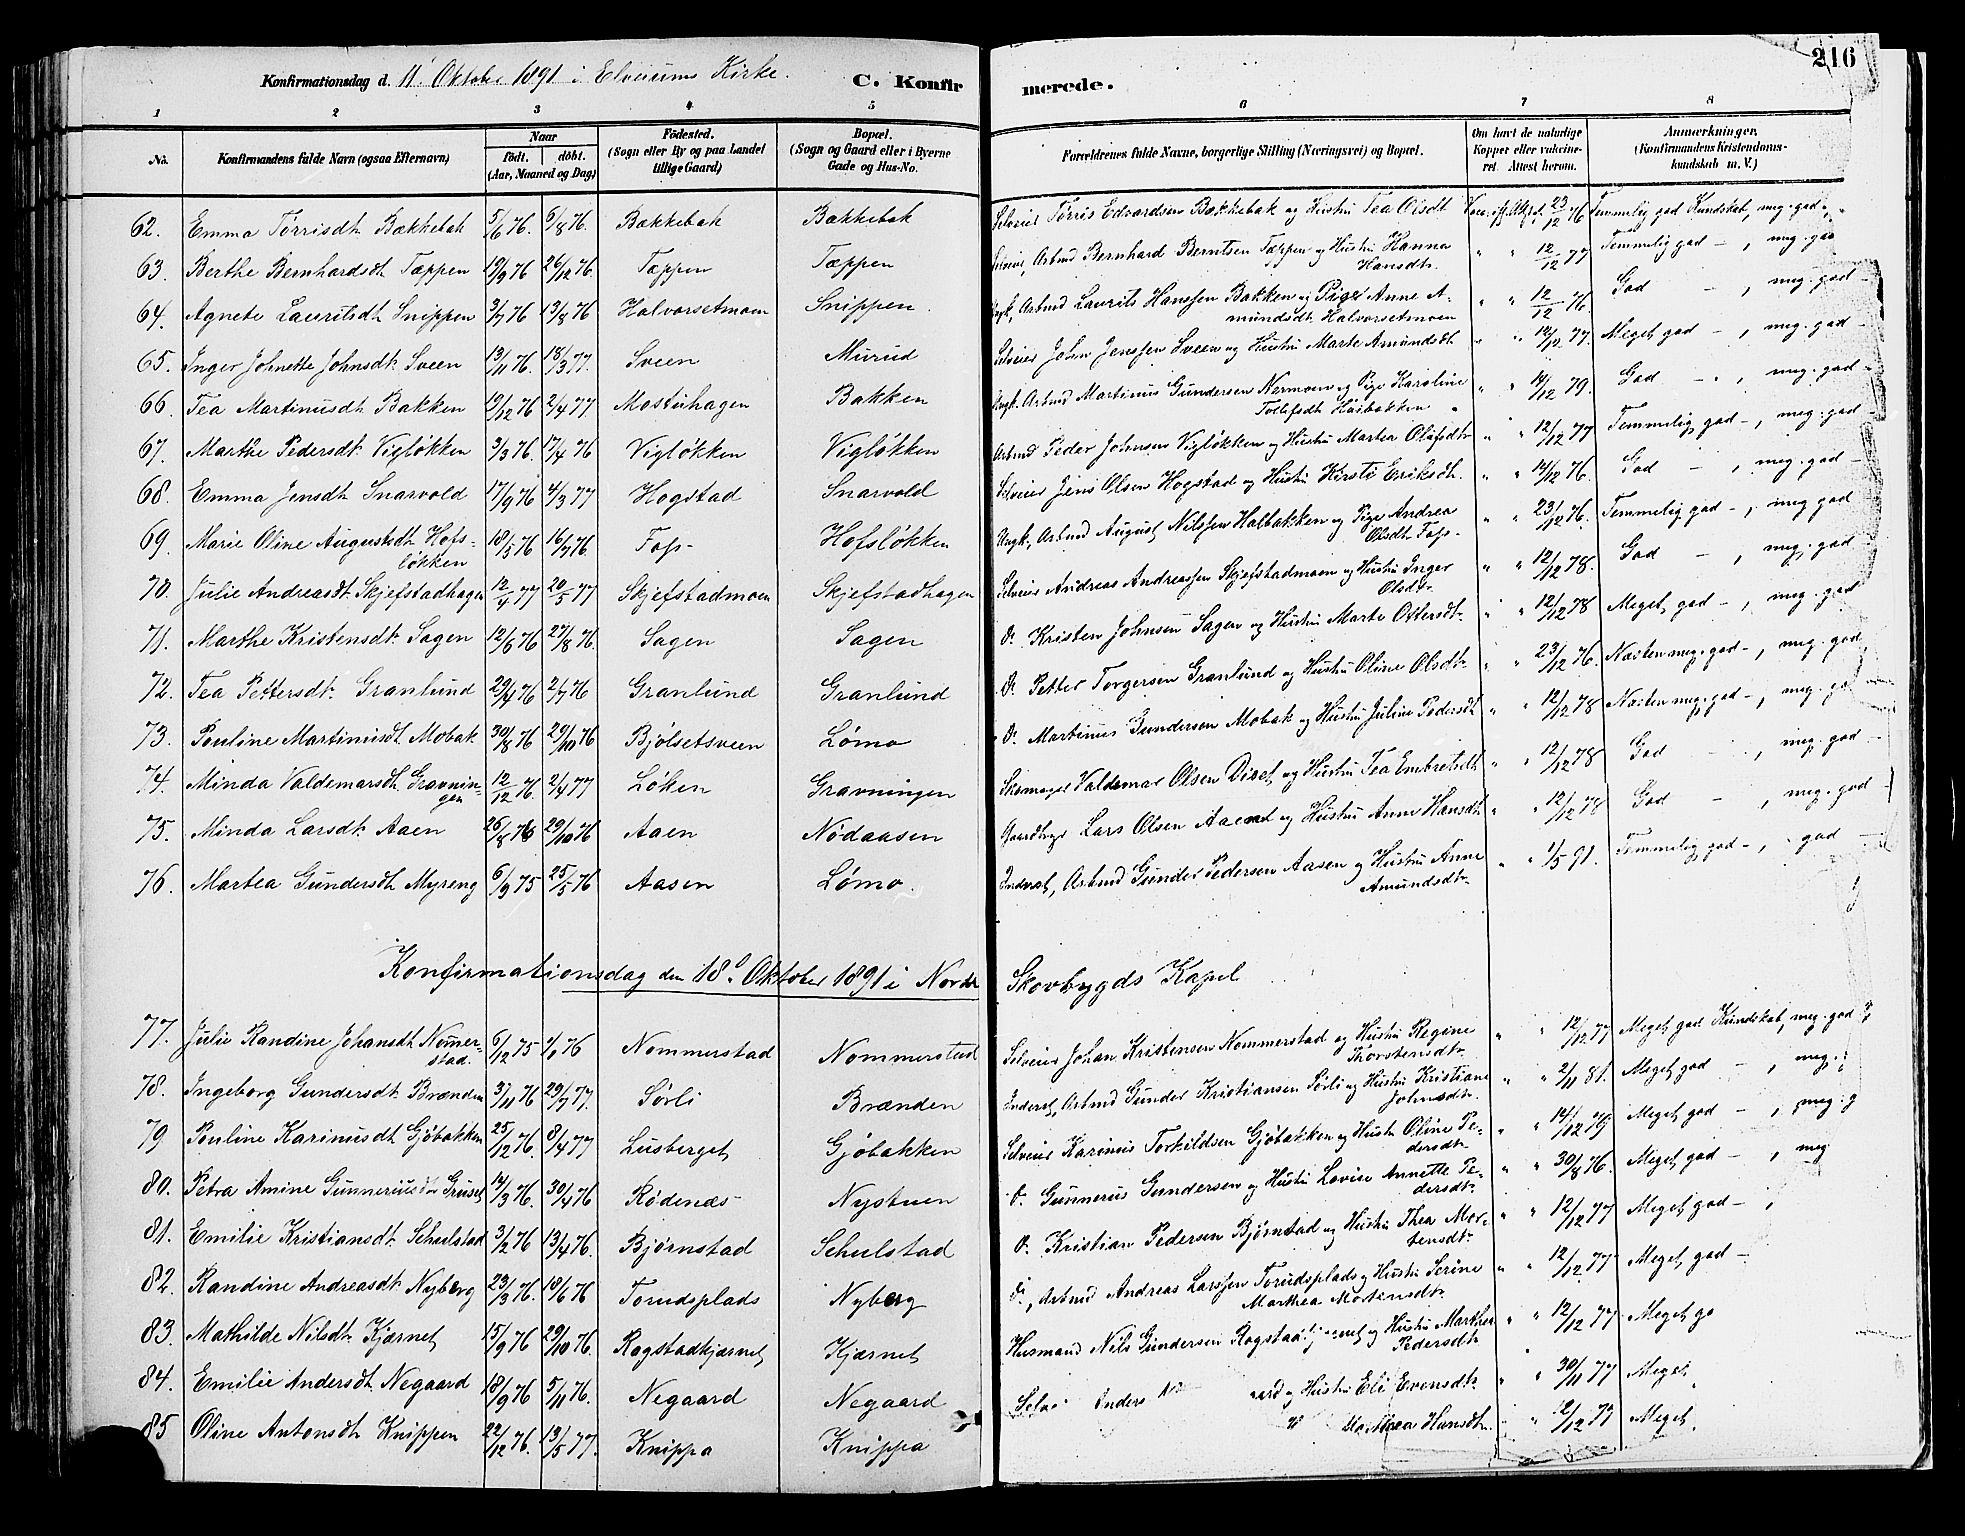 216
Konfirmationsdag d. 11' Oktober 1891 i Elverums Kirke. C. Konfirmerede.
1 2 3 4 5 6 7 8
No. Konfirmandens fulde Navn (ogsaa Efternavn) Naar födt. döbt. (Aar, Maaned og Dag) Födested. (Sogn eller By og paa Landet tillige Gaard) Bopæl. (Sogn og Gaard eller i Byerne Gade og Hus-No. Forældrenes fulde Navne, borgerlige Stilling (Næringsvei) og Bopæl. Om havt de naturlige Kopper eller vakcineret. Attest herom. Anmærkninger. (Konfirmandens Kristendomskundskab m. V.)
62. Emma Törrisdt. Bækkebak 5/6 76. 6/8 76. Bækkebak Bækkebak Selveier Törris Edvardsen Bækkebak og Hustru Tea Olsdt. 23/12 76 Temmelig god Kundskab, meg. god
63. Berthe Bernhardsdt. Tæppen 19/9 76 26/12 76. Tæppen Tæppen Selveier, Arbmd Bernhard Berntsen Tæppen og Hustru Hanna Hansdt. " " 12/12 77 Temmelig god – , meg. god
64. Agnete Lauritsdt. Snippen 3/7 76 13/8 76 Halvorsetmoen Snippen. Ungk, Arbmd Laurits Hanssen Bakken og Pige Anne Amundsdt. Halvorsetmoen " " 12/12 76. God – , meg. god –
65. Inger Johnette Johnsdt. Sveen 13/11 76. 18/3 77. Sveen Murud Selveier John Jenssen Sveen og Hustru Marte Amundsdt. " " 12/12 77. Meget god – , meg. god –
66. Tea Martinusdt. Bakken 19/12 76 2/4 77 Mostuhagen Bakken Ungk. Arbmd Martinus Gundersen Nermoen og Pige Karoline Tollefsdt. Husbakken " " 14/12 79. God – , meg. god –
67. Marthe Pedersdt. Vigløkken 3/3 76. 17/4 76 Vigløkken Vigløkken Arbmd Peder Johnsen Vigløkken og Hustru Martea Olafsdt. " " 12/12 77 Temmelig god – , meg. god –
68. Emma Jensdt. Snarvold 17/9 76 4/3 77 Hogstad Snarvold Selveier Jens Olsen Hogstad og Hustru Kirsti Eriksdt. " " 14/12 76. God – , meg. god –
69. Marie Oline Augustsdt. Hofsløkken 18/5 76 16/7 76. Fos- Hofsløkken Ungk, Arbmd August Nilssen Halbakken og Pige Andrea Olsdt. Fos- " " 23/12 76. Temmelig god – , meg. god
70. Julie Andreasdt. Skjefstadhagen 12/4 77 20/5 77 Skjefstadmoen Skjefstadhagen Selveier Andreas Andreassen Skjefstadmoen og Hustru Inger Olsdt. " " 12/12 78. God – , meg. god
71. Marthe Kristensdt. Sagen 12/6 76 27/8 76. Sagen Sagen Do. Kristen Johnsen Sagen og Hustru Marte Ottersdt. " " 12/12 78 Meget god – , meg. god
72. Tea Pettersdt. Granlund 29/4 76 2/7 76 Granlund Granlund Do. Petter Torgersen Granlund og Hustru Oline Olsdt. " " 23/12 76. Næsten meg. god – , meg. god
73. Pauline Martinusdt. Mobak 30/8 76 29/10 76 Bjölsetsveen Lømo Do. Martinus Gundersen Mobak og Hustru Juline Pedersdt. " " 12/12 78 Næsten meg. god – , meg. go
74. Minda Valdemarsdt. Gravningen 12/12 76. 2/4 77 Løken Gravningen Skomager Valdemar Olsen Diset og Hustru Tea Embretsdt. " " 12/12 78 God – , meg. god –
75. Minda Larsdt. Aaen 26/8 76 29/10 76 Aaen Nödaasen Gaardbrger Lars Olsen Aaen og Hustru Anne Hansdt. " " 12/12 78 God – , meg. god –
76. Martea Gundersdt. Myreng 6/9 75 25/5 76 Aasen Lømo. Inderst, Arbmd Gunder Pedersen Aasen og Hustru Anne Amundsdt. " " 1/5 91. Temmelig god – , god –
Konfirmationsdag den 18d Oktober 1891 i Nordre Skovbygds Kapel
77. Julie Randine Johansdt. Nommerstad. 6/12 75 76 Nommerstad Nommerstad Selveier Johan Kristensen Nommerstad og Hustru Regine Thorstensdt. " " 12/12 77 Meget god Kundskab, meg. god
78. Ingeborg Gundersdt. Brænden 3/11 76 29/7 77. Sörli Brænden Inderst, Arbmd Gunder Kristiansen Sörli og Hustru Kristiane Johnsdt. " " 2/11 81. Meget god – , meg.
79 Pouline Karinusdt. Gjöbakken 25/12 76. 8/4 77 Lusberget Gjöbakken Selveier Karinus Torkildsen Gjöbakken og Hustr. Oline Pedersdt. " " 14/12 79 Meget god – , meg. g
80. Petra Amine Gunneriusdt. Gruset 14/3 76. 30/4 76 Rödenæs- Nystuen Do. Gunnerus Gundersen og Hustru Lovise Annette Pedersdt. " " 30/8 76. Meget god – , meg
81. Emilie Kristiansdt. Schulstad 3/2 76 13/4 76. Bjørnstad Schulstad Do. Kristian Pedersen Bjørnstad og Hustru Thea Mortensdt. " " 12/12 77 Meget god – ,
82. Randine Andreasdt. Nyberg 23/3 76. 18/6 76 Torudsplads Nyberg Do., Arbmd Andreas Larssen Torudsplads og Hustru Serine Marthea Mortensdt. " " 12/12 77. Meget god –
83. Mathilde Nilsdt. Kjærnet 15/9 76 29/10 76. Rogstadkjærnet Kjærnet Husmand Nils Gundersen Rogstad og Hustru Marthea Pedersdt. " " 12/12 77 Meget go
84. Emilie Andersdt. Negaard 18/9 76 5/11 76. Negaard Negaard Anders aard og Hustru Eli Evensdt. " " 30/11 77 Meget
85 Oline Antonsdt. Knippen 22/12 76. 13/5 77. Knippa Knippa Hansdt. " " 12/12 77 Meget